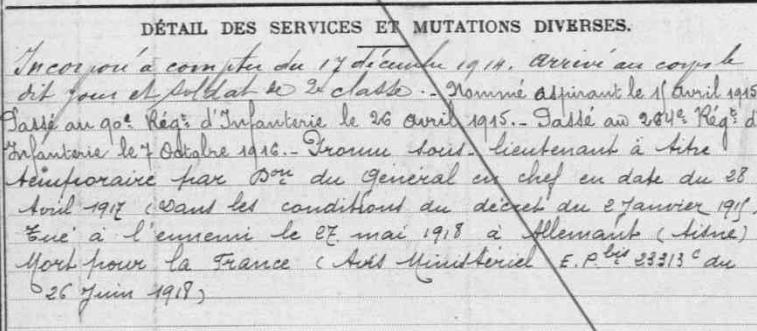 DÉTAIL DES SERVICES ET MUTATIONS DIVERSES.
Incorporé à compter du 17 décembre 1914. Arrivé au corps le
dit jour et soldat de 2e classe. _ Nommé aspirant le 15 avril 1915
Passé au 90e Régt d'Infanterie le 26 avril 1915. _ Passé au 284e Régt d'
Infanterie le 7 Octobre 1916. _ Promu sous-lieutenant à titre
temporaire par Don du Général en chef en date du 28
Avril 1917 (Dans les conditions du décret du 2 Janvier 1915.
Tué à l'ennemi le 27 mai 1918 à Allemant (Aisne)
Mort pour la France (Avis Ministériel E.P.bis 23313c du
26 Juin 1918)